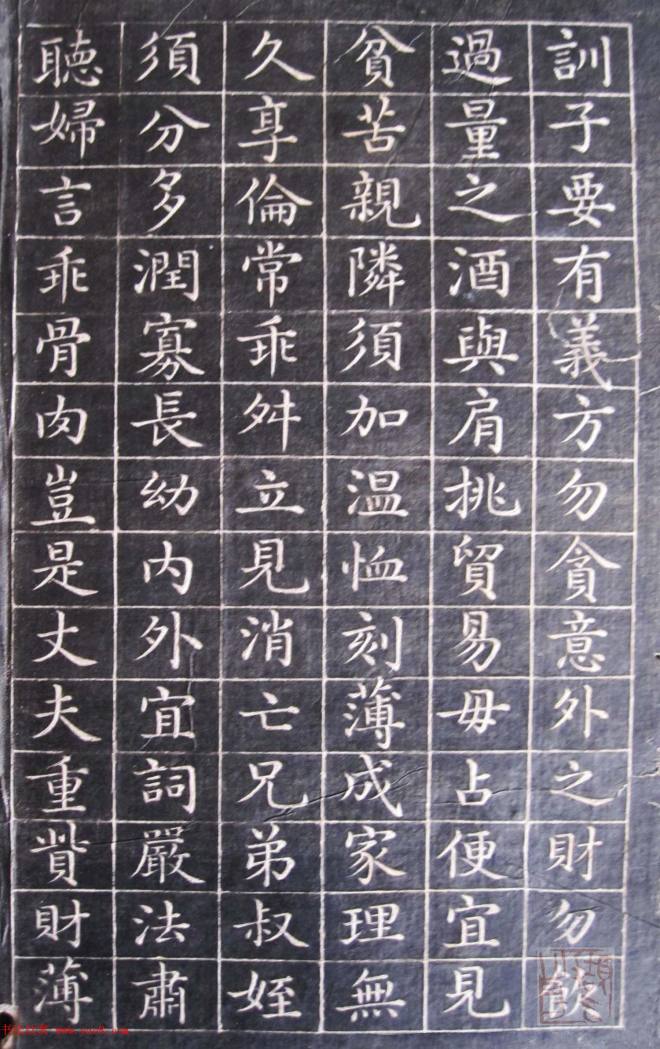 訓子要有義方勿貪意外之財勿飲
過量之酒與肩挑貿易毋占便宜見
貧苦親隣須加温恤刻薄成家理無
久享倫常乖舛立見消亡兄弟叔姪
須分多潤寡長幼内外宜詞嚴法肅
聽婦言乖骨肉豈是丈夫重貲財薄